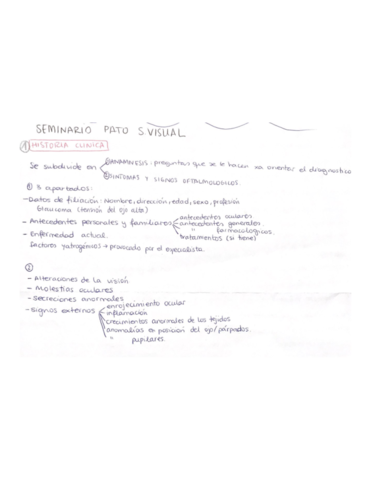 SEMINARIO PATO S.VISUAL
1 HISTORIA CLINICA
Se subdivide en
1 ANAMNESIS: preguntas que se le hacen xa orientar el diagnostico
2 SINTOMAS Y SIGNOS OFTALMOLOGICOS.
1 3 apartados:
- Datos de filiación: Nombre, dirección, edad, sexo, profesión
glaucoma (tensión del ojo alta)
- Antecedentes personales y familiares
antecedentes oculares
antecedentes generales
" farmacologicos.
tratamientos (si tiene)
- Enfermedad actual.
factores yatrogénicos → provocado por el especialista.
2
- Alteraciones de la visión
- Molestias oculares
- Secreciones anormales
- Signos externos
enrojecimiento ocular
inflamación
crecimientos anormales de los tejidos
anomalías en posición del ojo/párpados.
" pupilares.